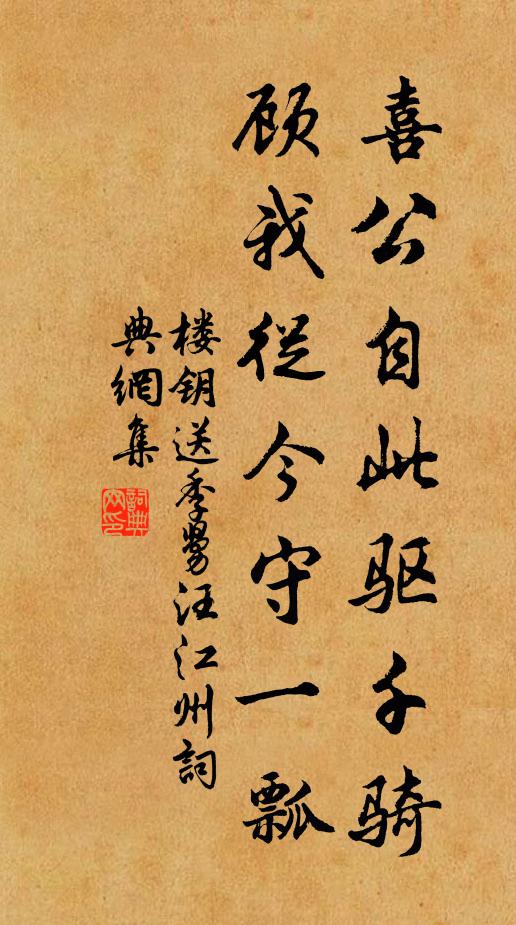 喜公自此驱千骑
顾我从今守一瓢
楼钥送季舅汪江州詞
典網集
詞典网印